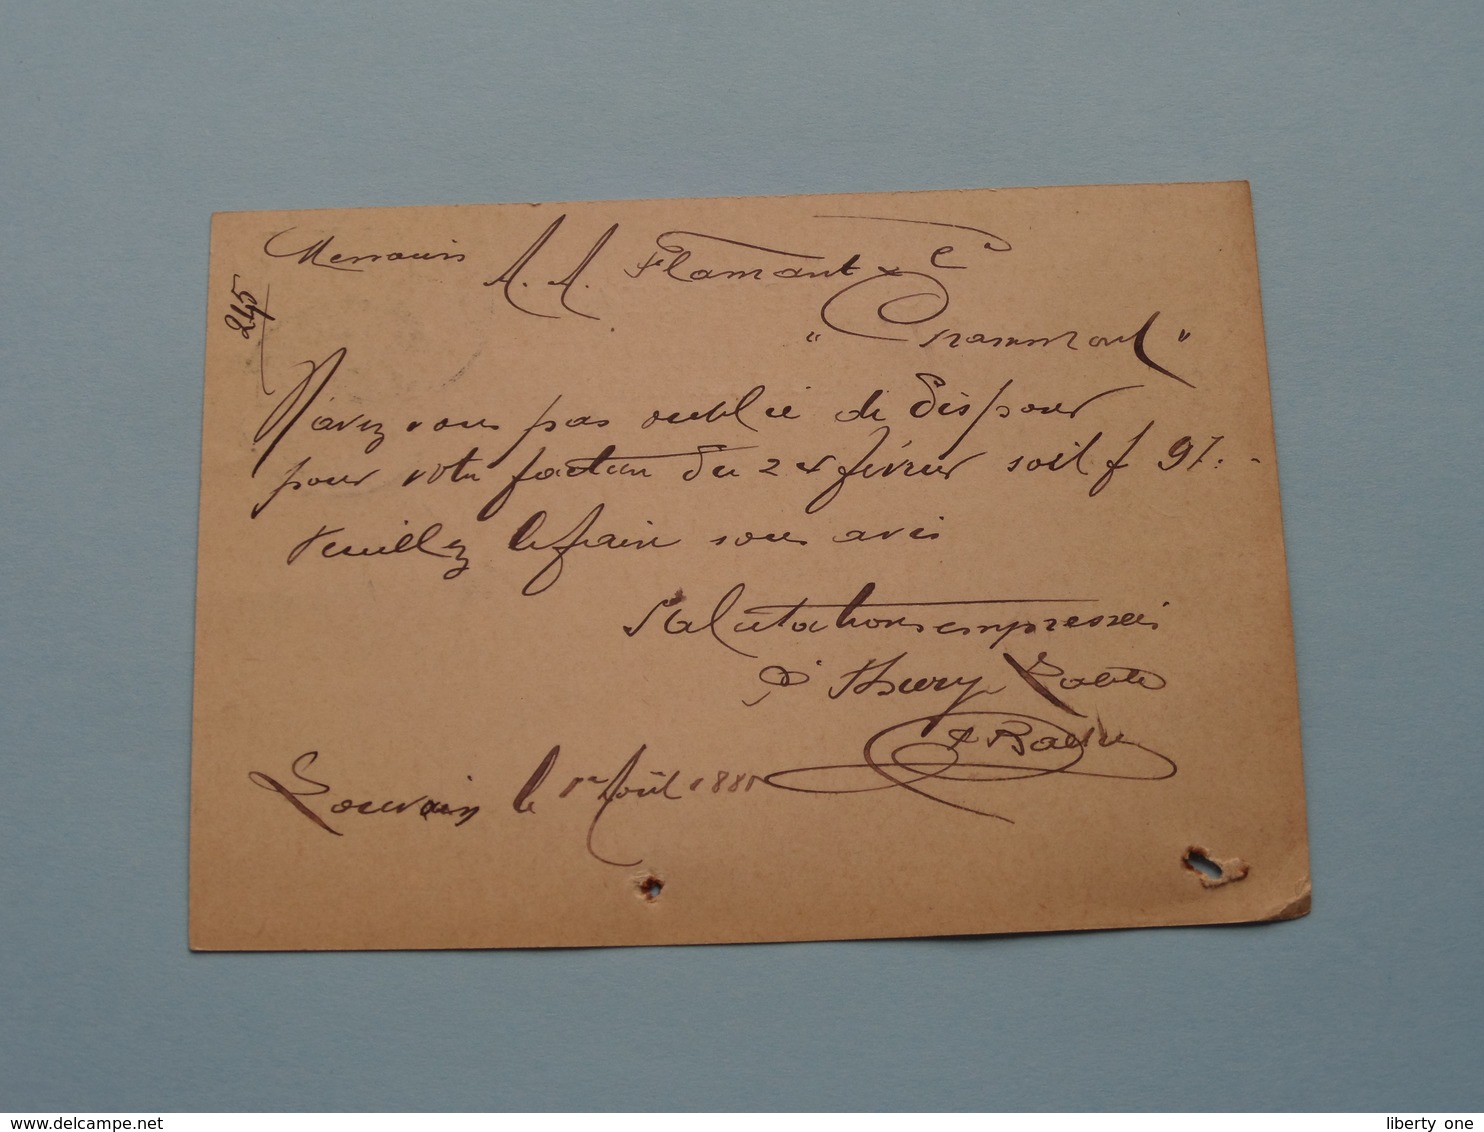 Messieurs A. A. Flamant & Cie
245
" Grammont "
N'avez vous pas oublié de dispour
pour votre facture du 24 février soit f 97.-
Veuillez le faire sous avis
Salutations empressées
Louvain le 1er Août 188
delcampe.net
liberty_one